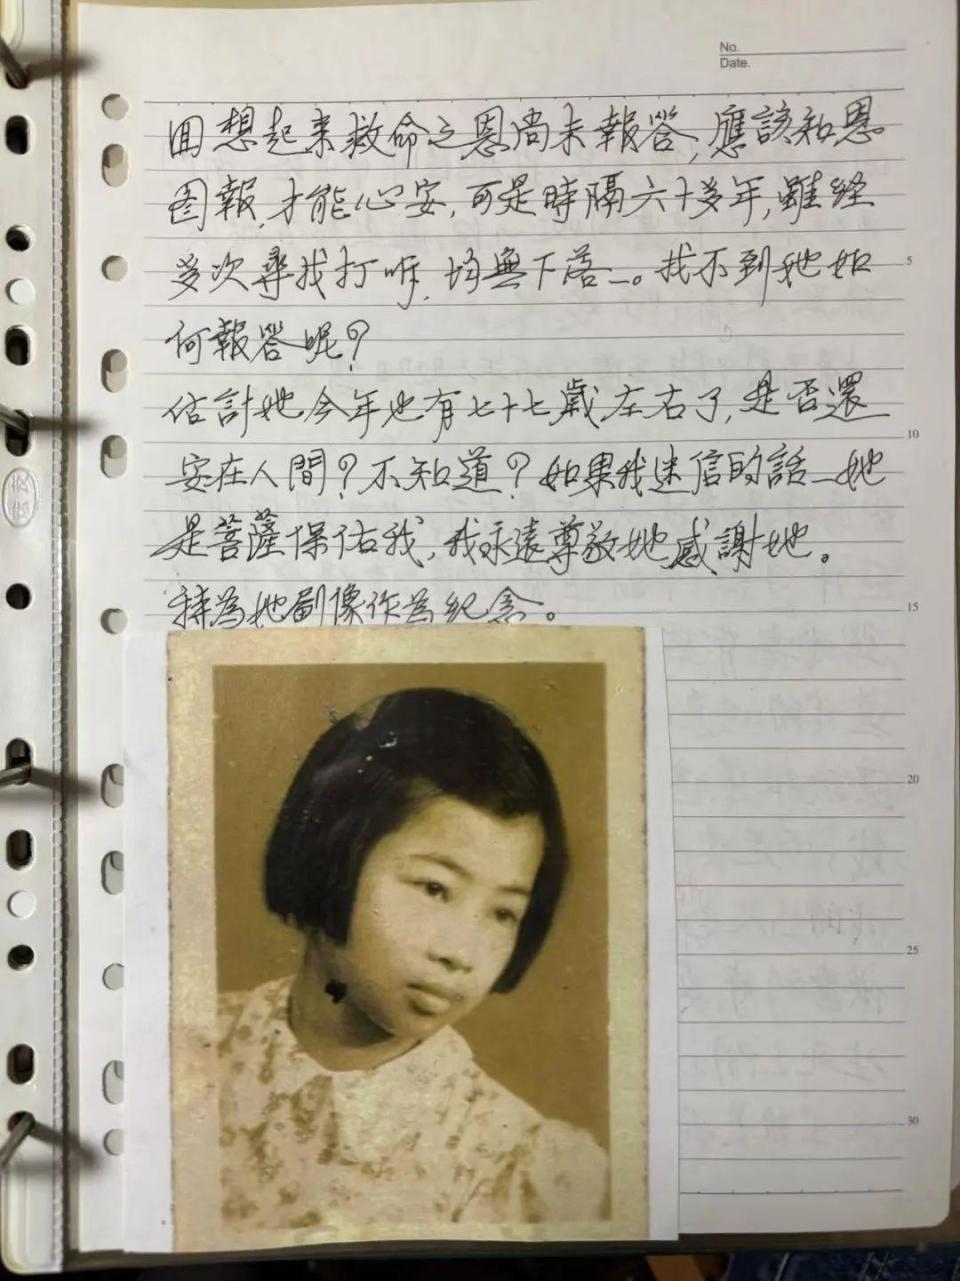 No.
Date.
回想起来救命之恩尚未報答,應該知恩
图報,才能心安,可是時隔六十多年,雖经
多次尋找打听,均無下落。找不到她如
何報答呢?
估計她今年也有七十七歲左右了,是否還
安在人間?不知道?如果我迷信的話—她
是菩薩保佑我,我永遠尊敬她感謝她。
特為她剾像作為紀念。
5
10
15
20
25
30